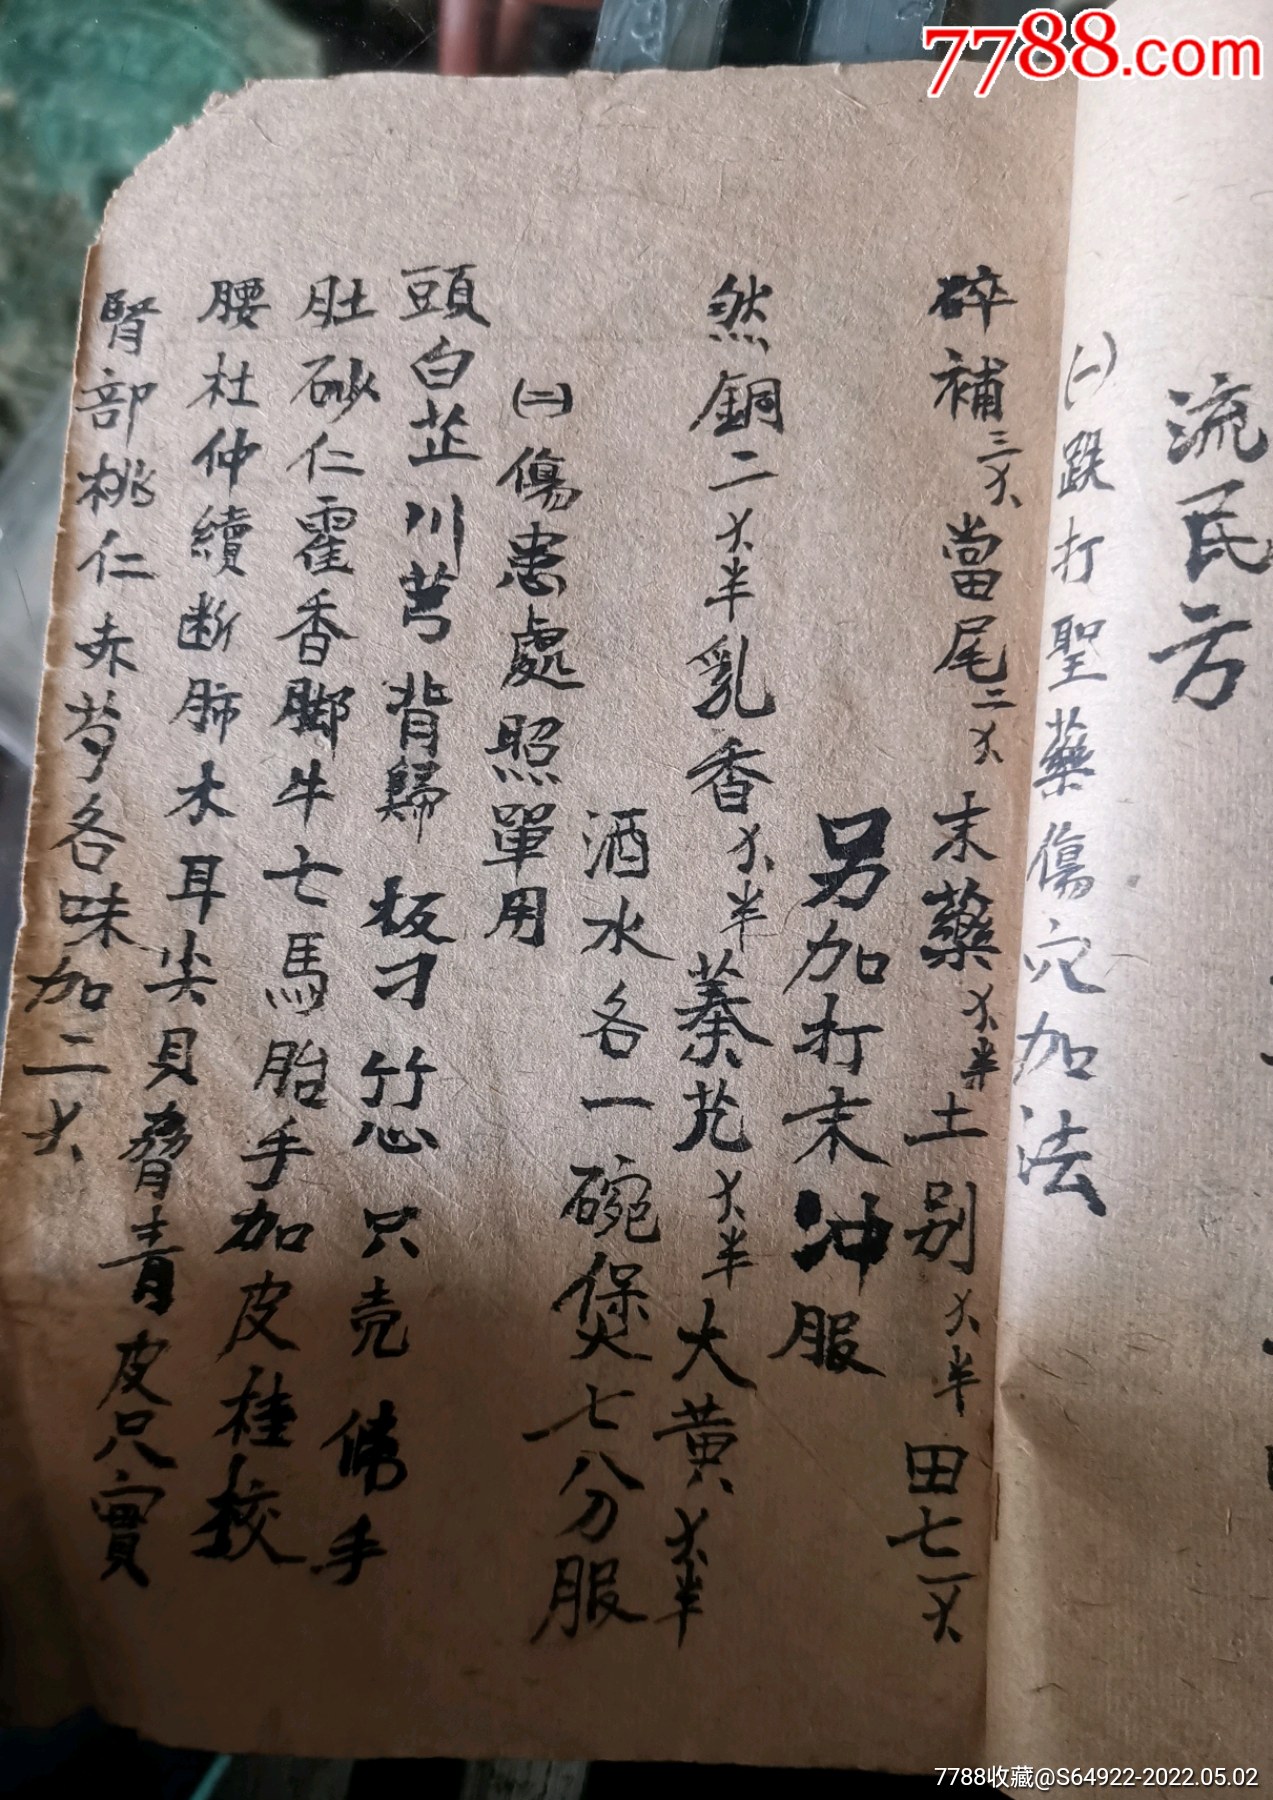 7788.com
流民方
㈠跌打聖藥傷穴加法
碎補三㐅當尾二㐅末藥㐅半土别㐅半田七一㐅
另加打末沖服
然銅二㐅半乳香㐅半蓁艽㐅半大黄㐅半
酒水各一碗煲七八分服
㈡傷患處照單用
頭白芷川芎背歸板刁竹心只壳
肚砂仁霍香脚牛七馬胎手加皮桂
腰杜仲續断肺木耳尖貝脅青皮只實
腎部桃仁赤芍各味加二㐅
7788收藏@S64922-2022.05.02